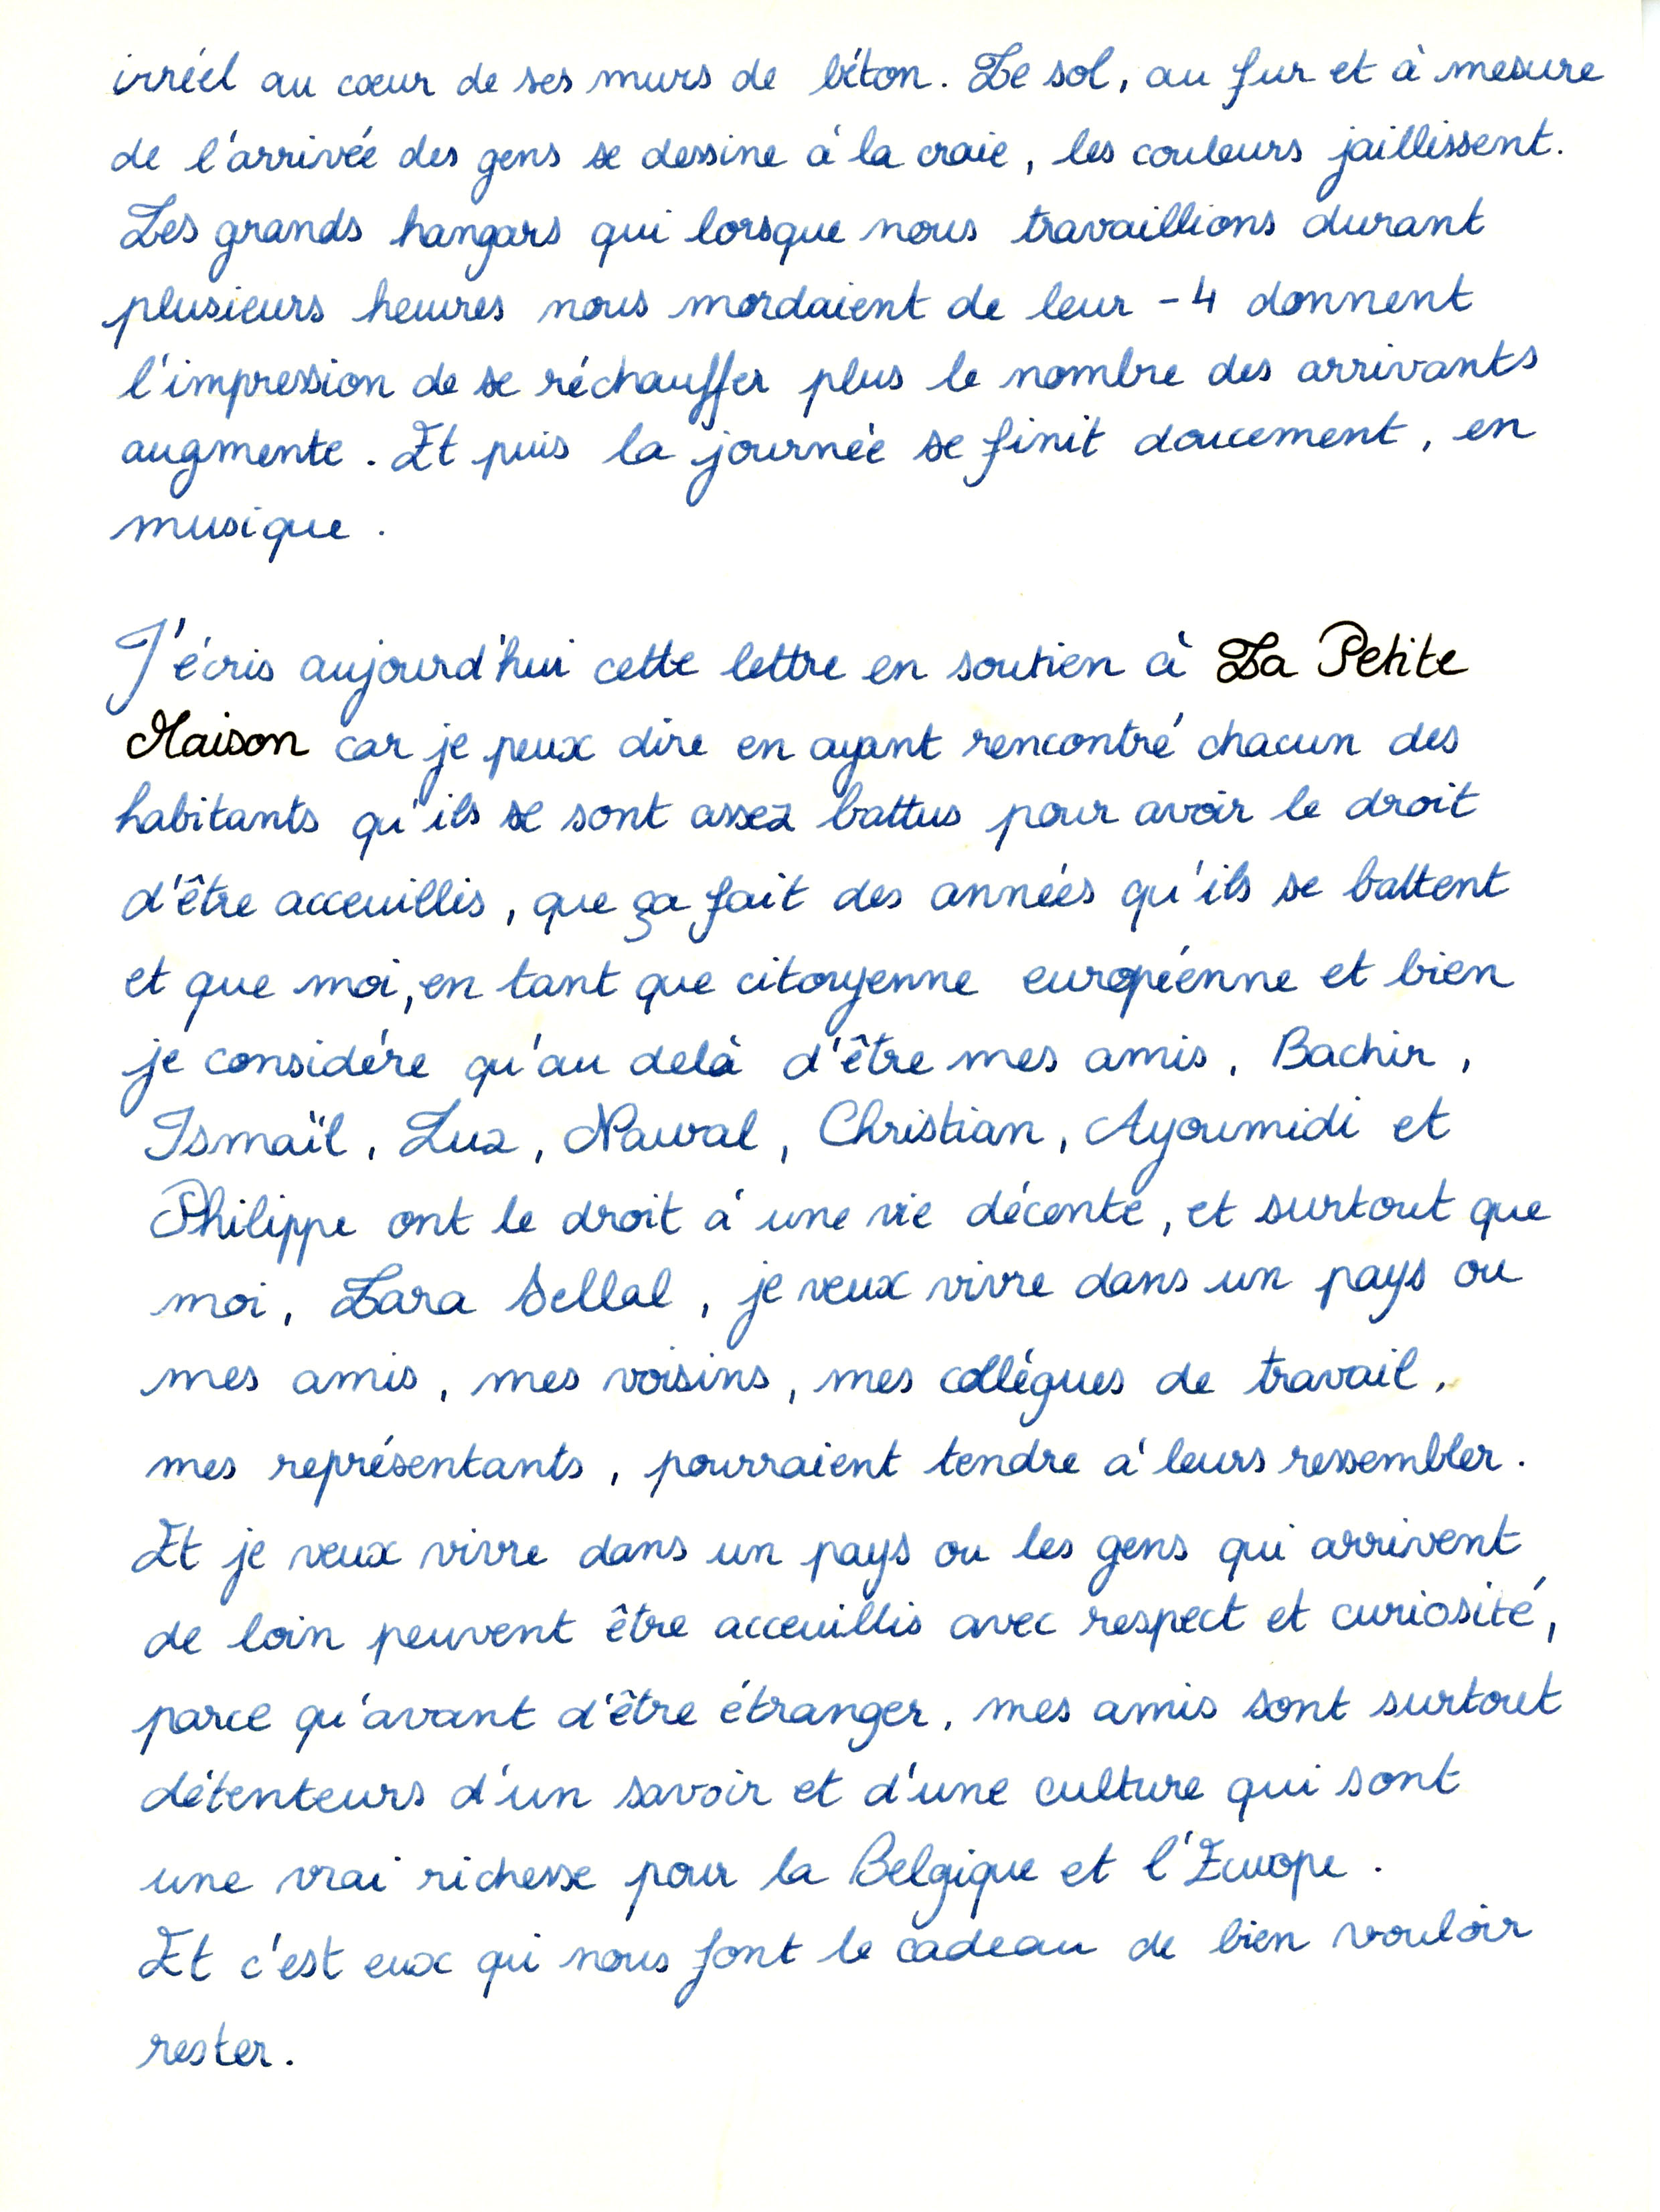 irréel au cœur de ses murs de béton. Le sol, au fur et à mesure
de l'arrivée des gens se dessine à la craie, les couleurs jaillissent.
Les grands hangars qui lorsque nous travaillions durant
plusieurs heures nous mordaient de leur -4 donnent
l'impression de se réchauffer plus le nombre des arrivants
augmente. Et puis la journée se finit doucement, en
musique.
J'écris aujourd'hui cette lettre en soutien à La Petite
Maison car je peux dire en ayant rencontré chacun des
habitants qu'ils se sont assez battus pour avoir le droit
d'être acceuillis, que ça fait des années qu'ils se battent
et que moi, en tant que citoyenne européenne et bien
je considére qu'au delà d'être mes amis, Bachir,
Ismaïl, Luz, Nawal, Christian, Ayoumidi et
Philippe ont le droit à une vie décente, et surtout que
moi, Lara Sellal, je veux vivre dans un pays ou
mes amis, mes voisins, mes collégues de travail,
mes représentants, pourraient tendre à leurs ressembler.
Et je veux vivre dans un pays ou les gens qui arrivent
de loin peuvent être acceuillis avec respect et curiosité,
parce qu'avant d'être étranger, mes amis sont surtout
détenteurs d'un savoir et d'une culture qui sont
une vrai richesse pour la Belgique et l'Europe.
Et c'est eux qui nous font le cadeau de bien vouloir
rester.